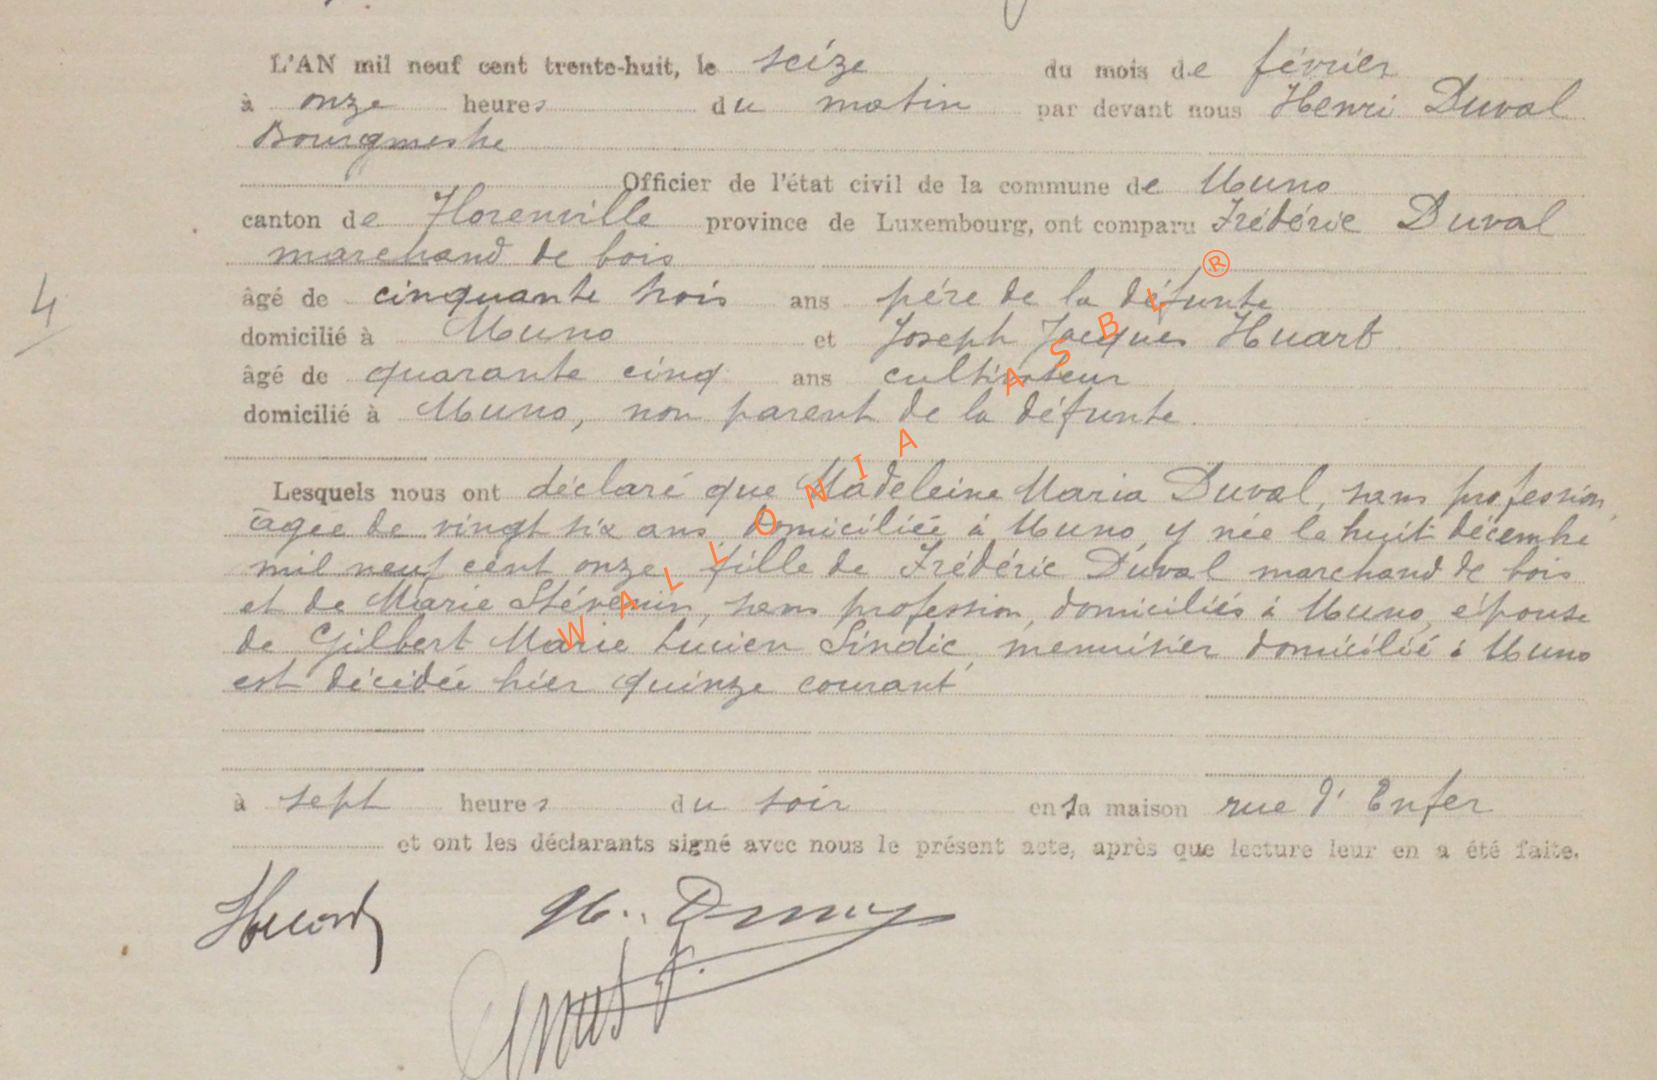 L'AN mil neuf cent trente-huit, le seize du mois de février
à onze heures du matin par devant nous Henri Duval
Bourgmestre
Officier de l'état civil de la commune de Muno
canton de Florenville province de Luxembourg, ont comparu Frédéric Duval
marchand de bois
4
âgé de cinquante trois ans père de la défunte
domicilié à Muno et Joseph Jacques Huart
âgé de quarante cinq ans cultivateur
domicilié à Muno, non parent de la défunte
Lesquels nous ont déclaré que Madeleine Maria Duval, sans profession,
âgée de vingt six ans, domiciliée à Muno, y née le huit décembre
mil neuf cent onze, fille de Frédéric Duval marchand de bois
et de Marie Stévenin, sans profession, domiciliés à Muno, épouse
de Gilbert Marie Lucien Sindic, menuisier domicilié à Muno
est décédée hier quinze courant
à sept heures du soir en sa maison rue d'Enfer
et ont les déclarants signé avec nous le présent acte, après que lecture leur en a été faite.
Huart
WALLONIA ASBL ®